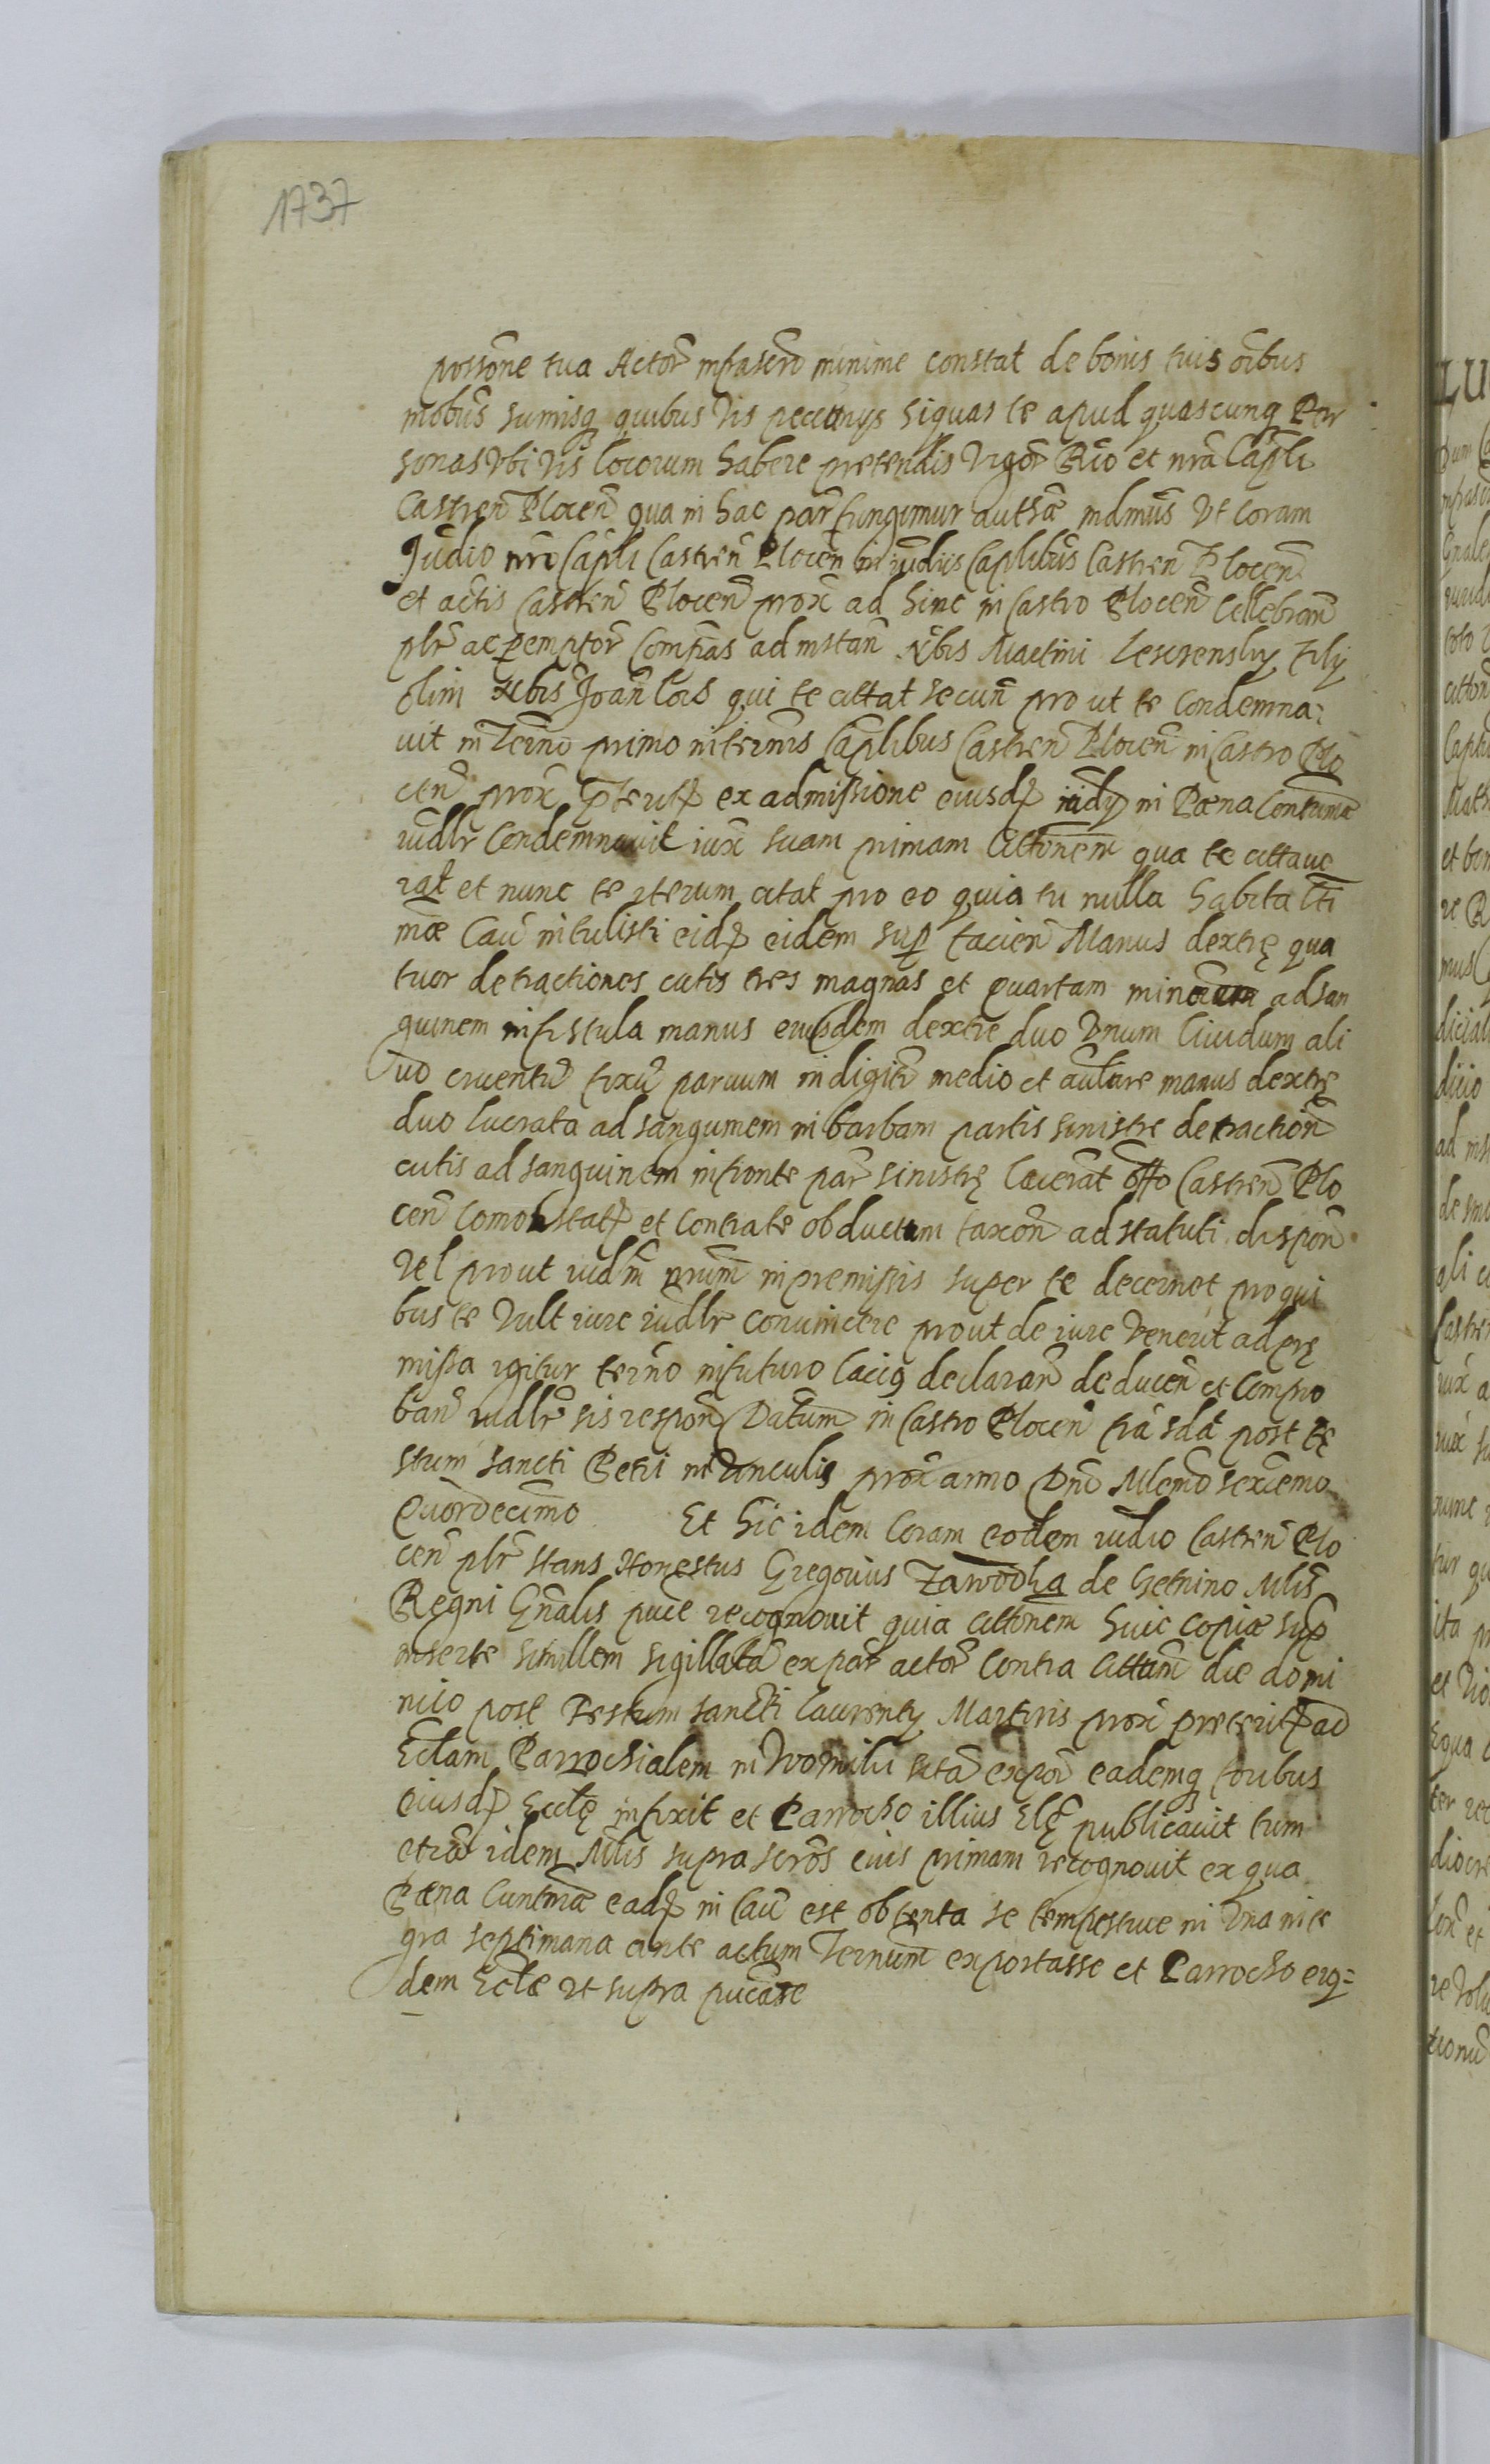 1737
possone tua Actor infrascro minime constat de bonis tuis oibus
mobus sumisq quibus vis pecunys siquas te apud quascunq Per
sonas Vbi vis locorum habere pretendis Vigor Rio et nra Capli
Castren Plocen qua in hac par fungimur authe mdmus Vt coram
Judio nro Capli Castren Plocen in iudiis Caplibus Castren Plocen
et actis Castren Plocen prox ad hinc in Castro Plocen Cellebran
plr ac pemptor Compas ad instan Nbis Martini filÿ
olim Nbis Joan qui te cittat secun pro ut te Condemna
uit in Terno primo in ternis Caplibus Castren Plocen in Castro Plo
cen prox pterit ex admissione eiusd iudÿ in Pœna Contumæ
iudlr Condemnauit iux suam primam Cittonem qua te cittaue
rat et nunc te iterum citat pro eo quia tu nulla habita lti
mæ Cau intulisti eid eidem sup facien Manus dextrę qua
tuor detractiones cutis tres magnas et quartam minorem ad san
guinem in fistula manus eiusdem dextre duo Vnum liuidum ali
ud cruentu fixu paruum in digito medio et aulare manus dextrę
duo lucrata ad sanguinem in barbam partis sinistre detraction
cutis ad sanguinem in fronte par sinistrę lacerat offo Castren Plo
cen Comonstat et Contra te obductum taxon ad statuti dispon
Vel prout iudm nrum in premissis super te decernet pro qui
bus te Vult iure iudlr conuincere prout de iure Venerit ad prę
missa igitur terno in futuro lacig declaran deducen et Compro
ban iudlr sis respon Datum in Castro Plocen fra sda post fę
stum Sancti Petri in Vinculis prox anno Dno Mlemo sexcemo
Quordecimo Et hic idem Coram eodem iudio Castren Plo
cen plr stans Honestus Gregorius Zawodka de Setnino Mlis
Regni Gnalis puce recognouit quia Cittonem huic copiæ sup
inserte simillem sigillata ex par actor Contra Cittum die domi
nico post Festum Sancti Laurentÿ Martiris prox preterit ad
Eclam Parrochialem in Womilu sita expor eademq foribus
eiusd Ecclę infixit et Parrocho illius Elę publicauit tum
etia idem Mlis supra scros eius primam recognouit ex qua
Pœna Cuntmæ ead in Cau est obtenta se tempestiue in Vna inte
gra septimana ante actum Ternum exportasse et Parrocho eiq=
dem Eclæ Vt supra pucasse